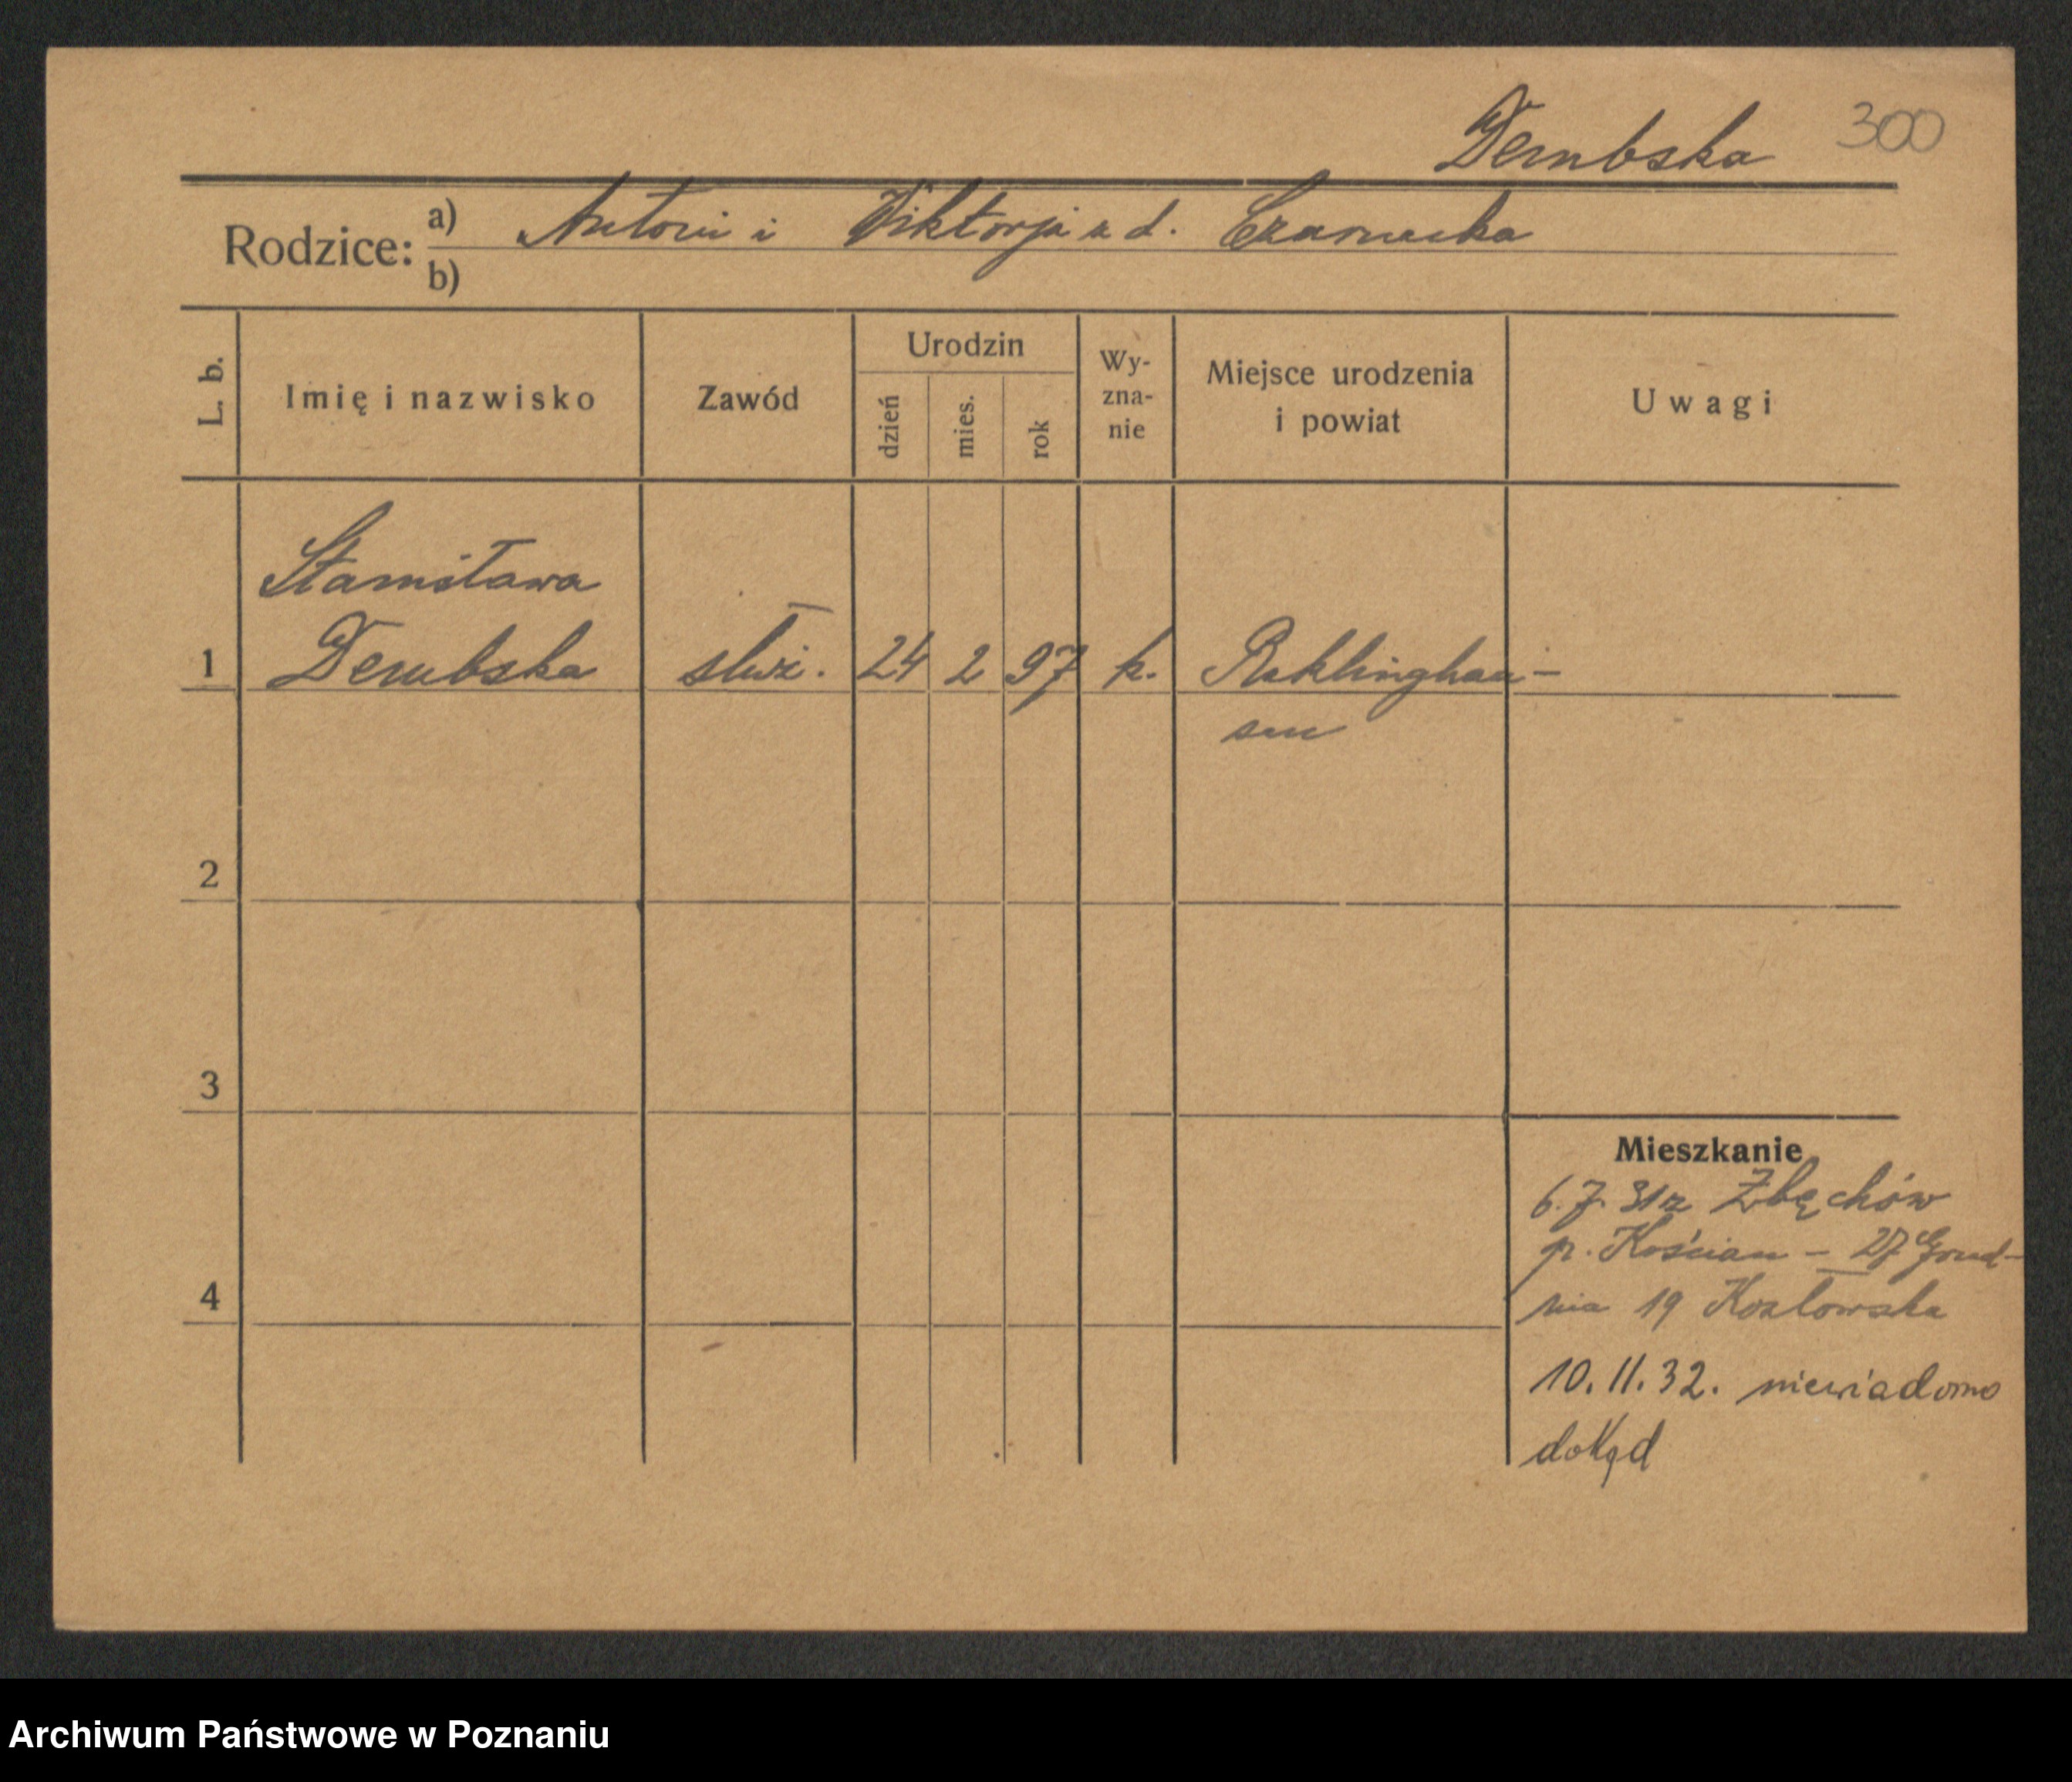 Dembska 300
Rodzice: a) Antoni i Wiktorja u d. Czarnecka
b)
L. b. Imię i nazwisko Zawód Urodzin dzień mies. rok Wy-zna-nie Miejsce urodzenia i powiat Uwagi
Stanisława
1 Dembska służ. 24 2 97 k. Reklinghau-
sen
2
3
Mieszkanie
6.7.31 z Zbęchów
p. Kościan – 27 Grud-
4
nia 19 Kozłowska
10.11.32. niewiadomo
dokąd
Archiwum Państwowe w Poznaniu